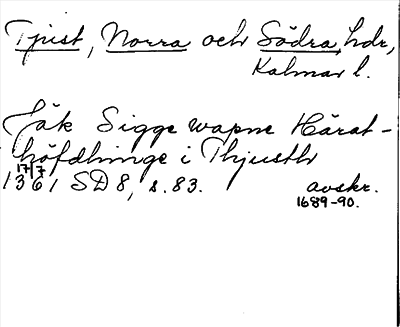 Tjust, Norra och Södra hdr,
Kalmar l.
Jäk Sigge wapne Härat-
höfdhinge i Thjusth
17/7
1361 SD 8, s. 83.
avskr.
1689-90.